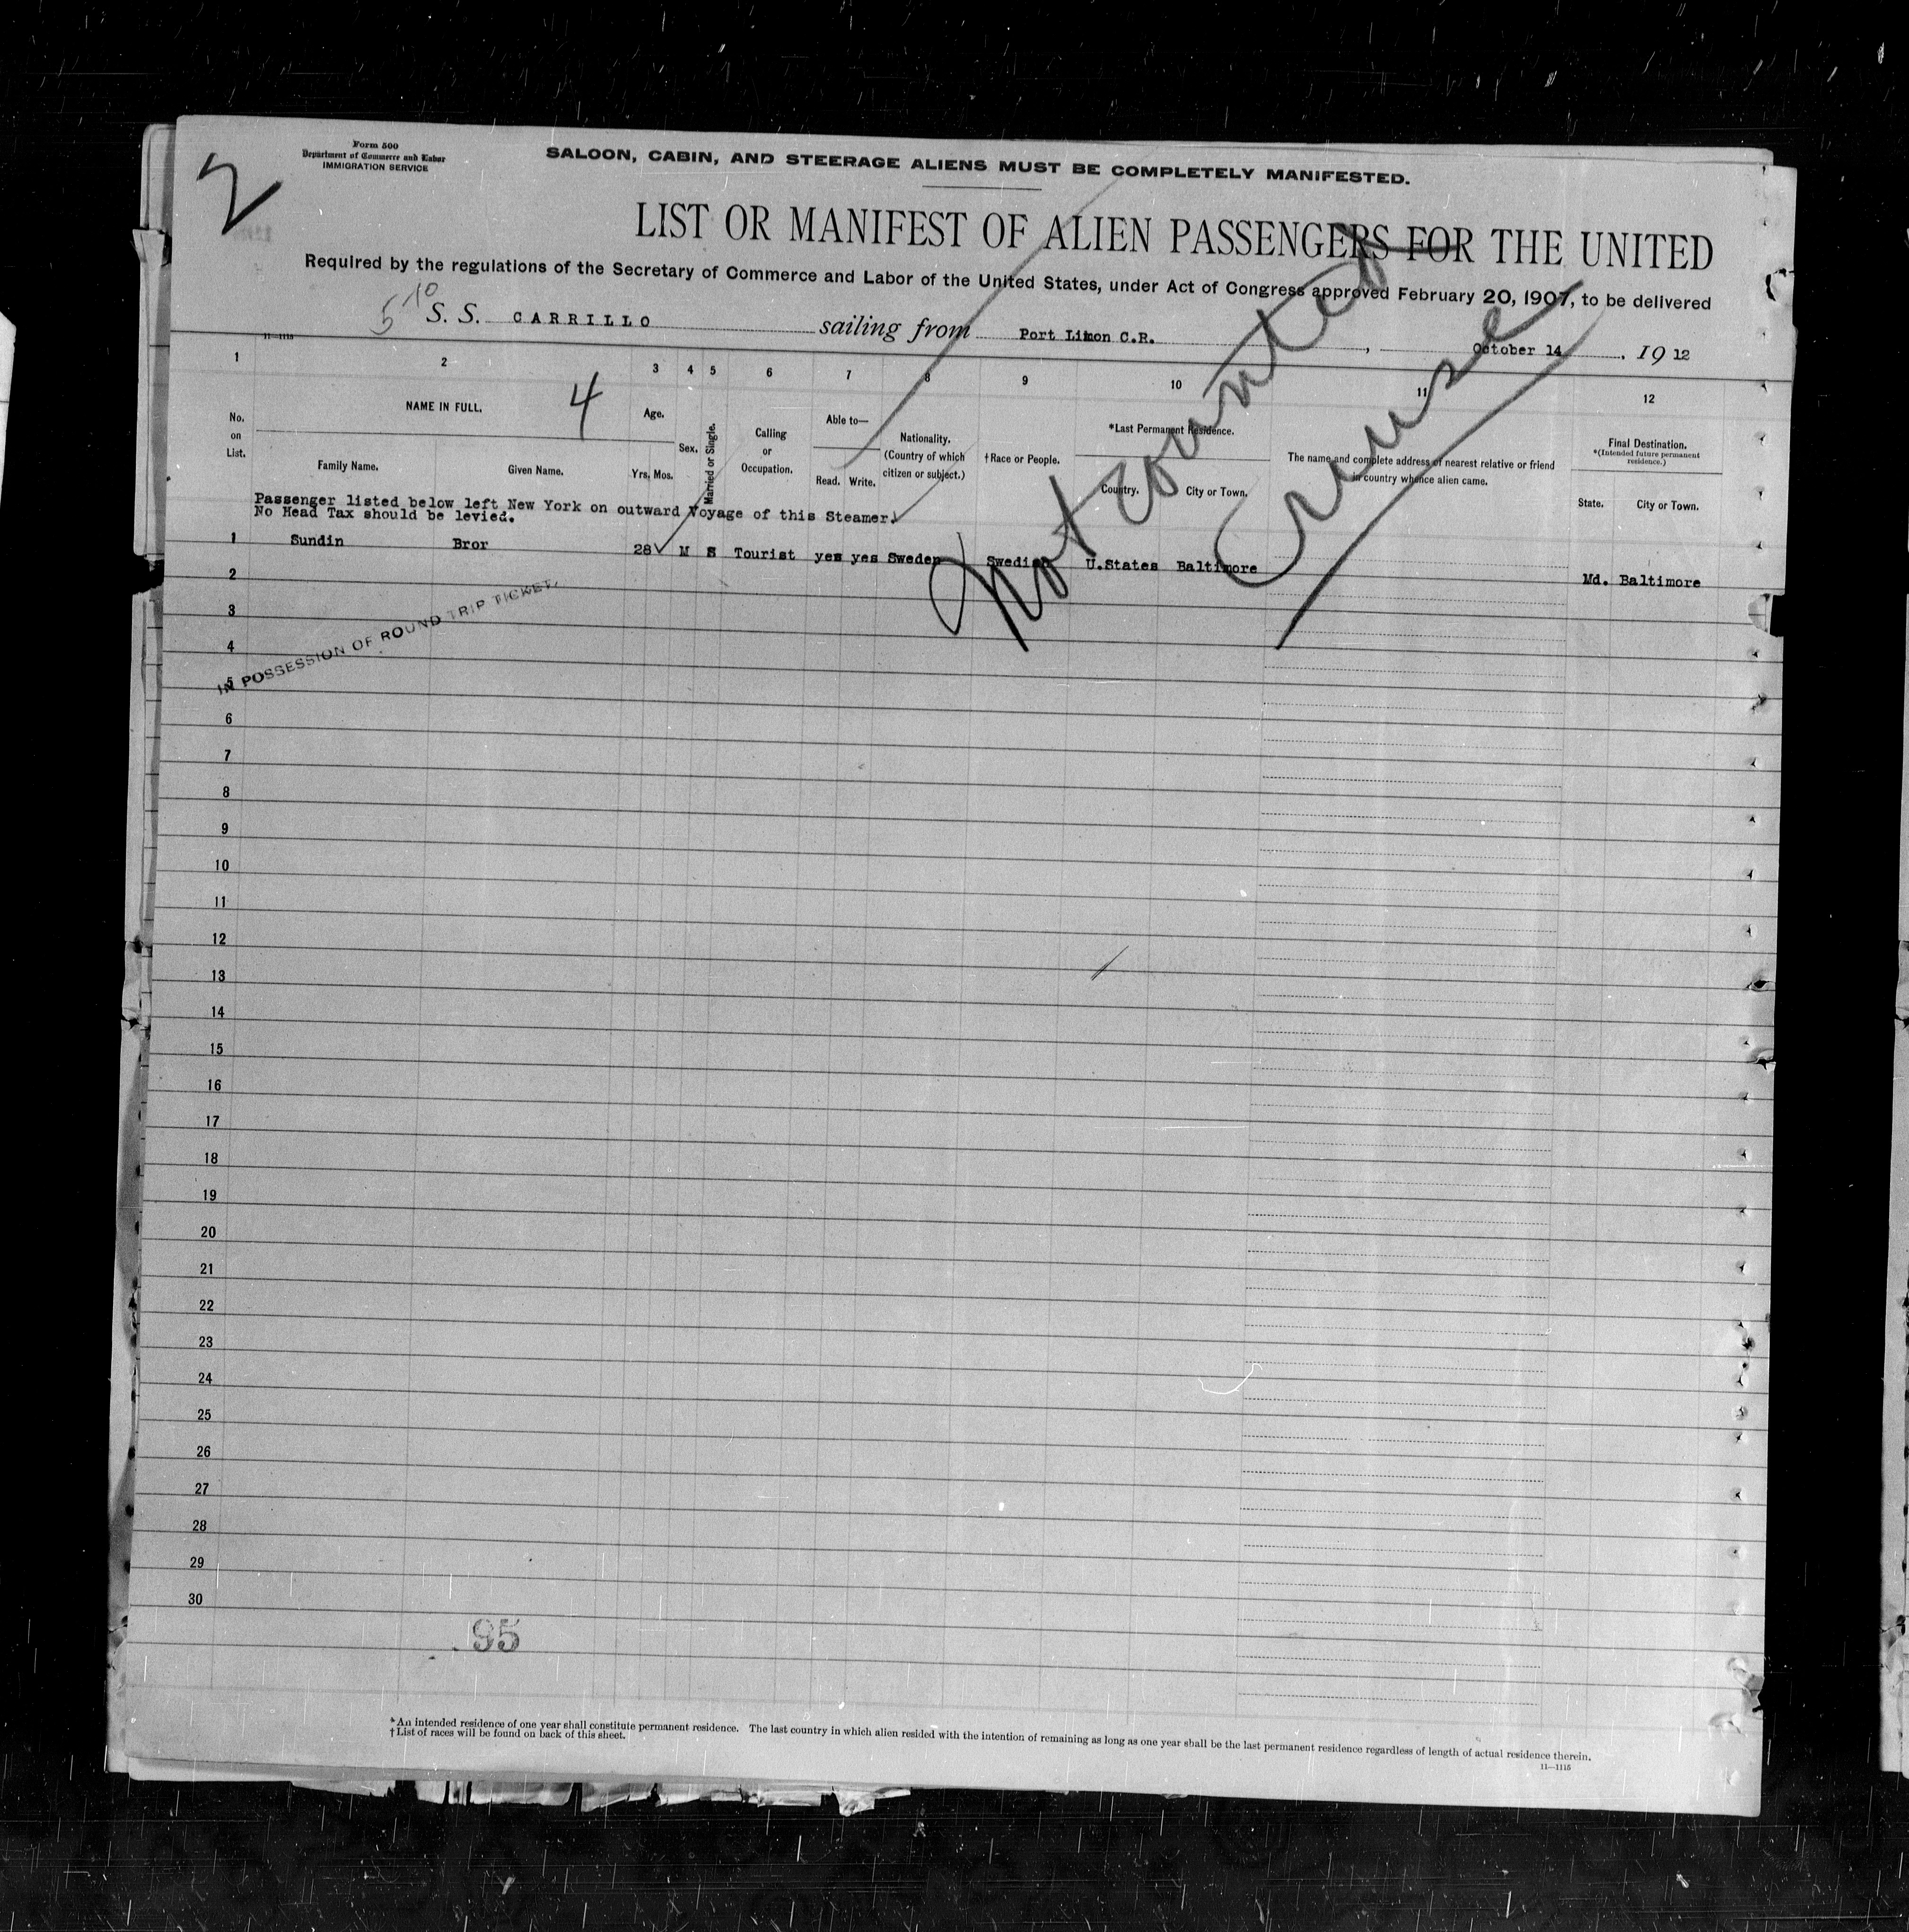 Form 500
Department of Commerce and Labor
IMMIGRATION SERVICE
2
SALOON, CABIN, AND STEERAGE ALIENS MUST BE COMPLETELY MANIFESTED.
LIST OR MANIFEST OF ALIEN PASSENGERS FOR THE UNITED
Required by the regulations of the Secretary of Commerce and Labor of the United States, under Act of Congress approved February 20, 1907, to be delivered
5 10
S. S. CARRILLO sailing from Port Limon C.R., October 14, 1912
11—1115
1 2 3 4 5 6 7 8 9 10 11 12
4
No. on List.
NAME IN FULL.
Family Name. Given Name.
Age.
Yrs. Mos.
Sex.
Married or Single.
Calling or Occupation.
Able to—
Read. Write.
Nationality. (Country of which citizen or subject.)
†Race or People.
*Last Permanent Residence.
Country. City or Town.
The name and complete address of nearest relative or friend in country whence alien came.
Final Destination.
*(Intended future permanent residence.)
State. City or Town.
Not Counted
Cruise
Passenger listed below left New York on outward Voyage of this Steamer.
No Head Tax should be levied.
1 Sundin Bror 28 M S Tourist yes yes Sweden Swedish U.States Baltimore Md. Baltimore
2
3
IN POSSESSION OF ROUND TRIP TICKET.
4
5
6
7
8
9
10
11
12
13
14
15
16
17
18
19
20
21
22
23
24
25
26
27
28
29
30
95
*An intended residence of one year shall constitute permanent residence. The last country in which alien resided with the intention of remaining as long as one year shall be the last permanent residence regardless of length of actual residence therein.
†List of races will be found on back of this sheet.
11—1115